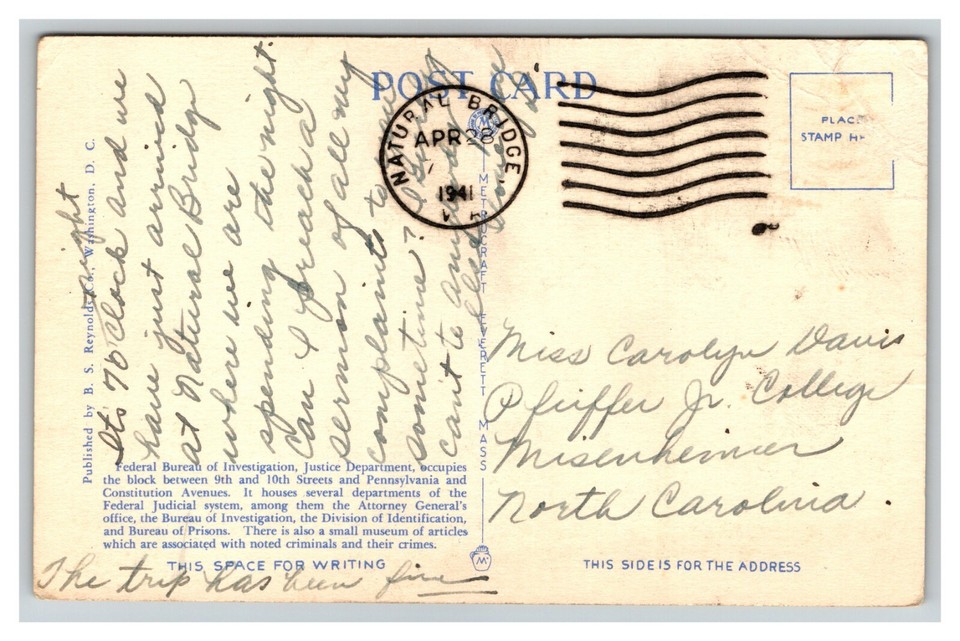 POST CARD
PLACE
STAMP HE
NATURAL BRIDGE,
APR 28
1941
VA
Published by B. S. Reynolds Co., Washington, D. C.
METROCRAFT EVERETT MASS
night
Its 7 o'Clock and we
have just arrived
at Natural Bridge
where we are
spending the night.
Can I preach a
sermon of all my
complaints to
sometime?
can't
Miss Carolyn Davis
Pfeiffer Jr. College
Misenheimer
North Carolina.
Federal Bureau of Investigation, Justice Department, occupies
the block between 9th and 10th Streets and Pennsylvania and
Constitution Avenues. It houses several departments of the
Federal Judicial system, among them the Attorney General's
office, the Bureau of Investigation, the Division of Identification,
and Bureau of Prisons. There is also a small museum of articles
which are associated with noted criminals and their crimes.
THIS SPACE FOR WRITING
THIS SIDE IS FOR THE ADDRESS
The trip has been fine